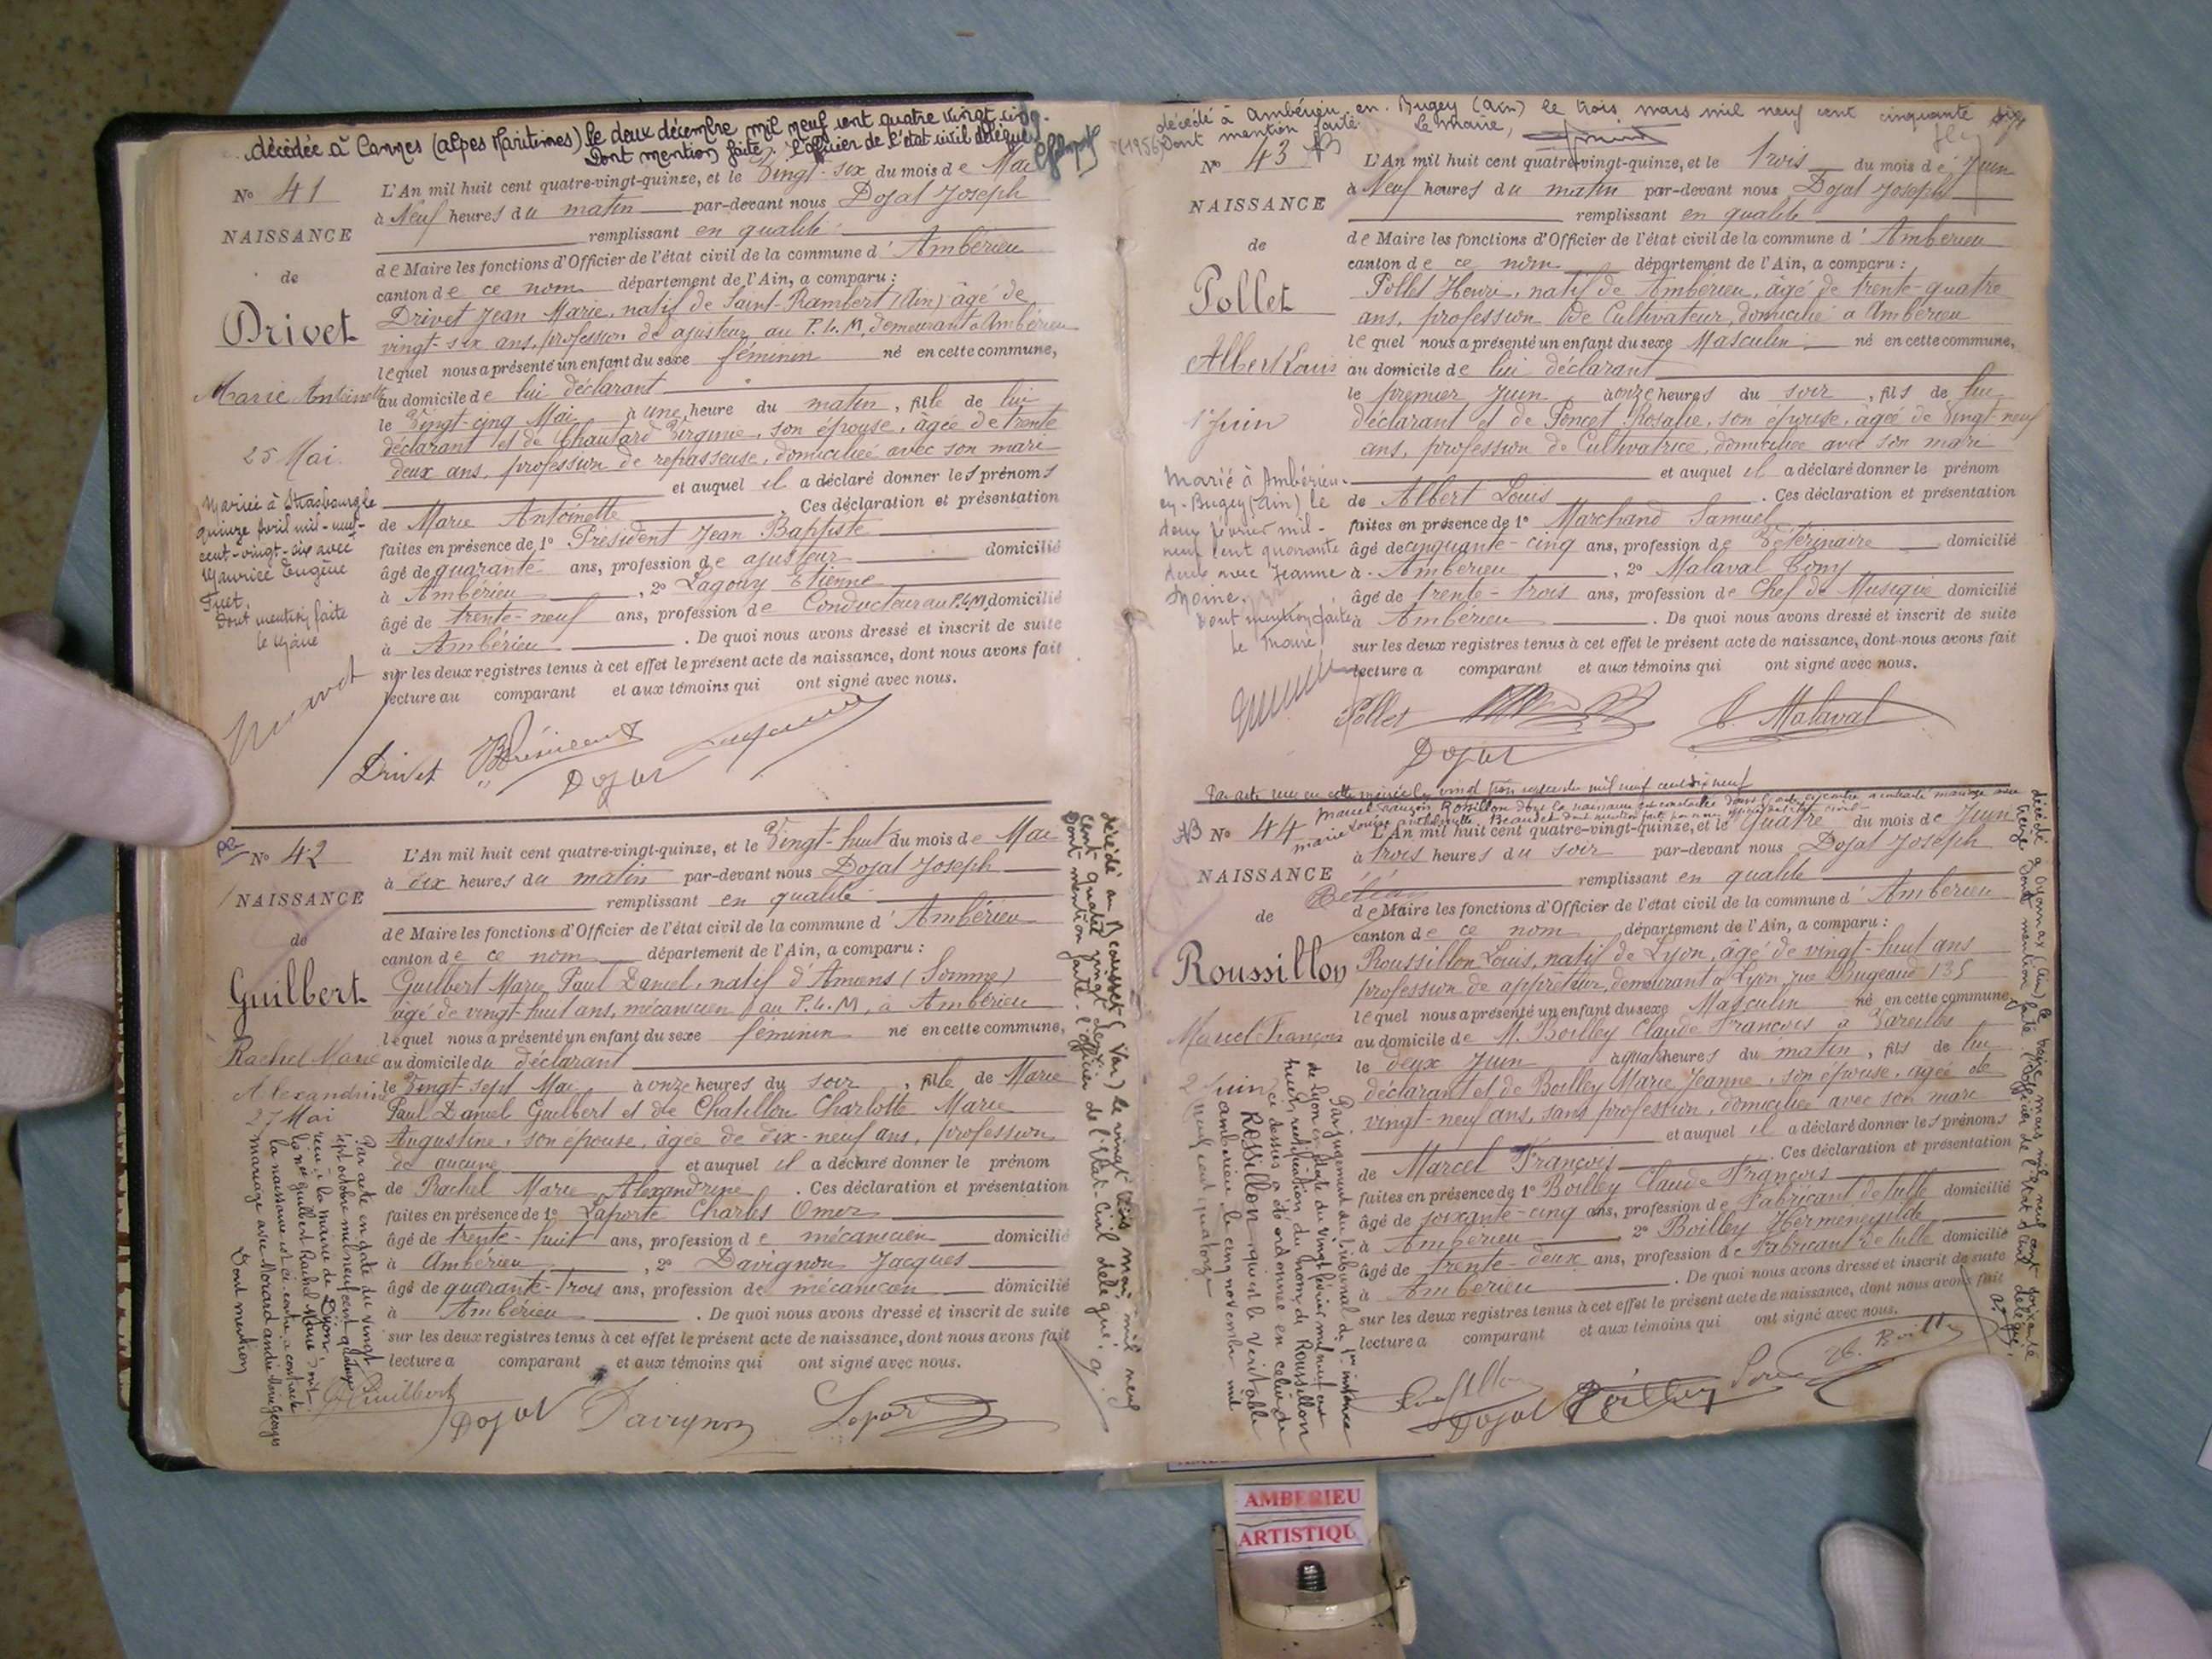 décédée à Cannes (Alpes Maritimes) le deux décembre mil neuf cent quatre vingt cinq.
Dont mention faite. L'officier de l'état civil délégué
No 41
NAISSANCE
de
Drivet
Marie Antoinette
25 Mai.
Mariée à Strasbourg le
quinze avril mil-neuf-
cent-vingt-six avec
Maurice Eugène
Dont mention faite
le Maire
L'An mil huit cent quatre-vingt-quinze, et le Vingt-six du mois de Mai
à Neuf heures du matin par-devant nous Dojat Joseph
remplissant en qualité
de Maire les fonctions d'Officier de l'état civil de la commune d'Ambérieu
canton de ce nom département de l'Ain, a comparu :
Drivet Jean Marie, natif de Saint-Rambert (Ain) âgé de
vingt-six ans, profession de ajusteur au P.L.M, demeurant à Ambérieu
lequel nous a présenté un enfant du sexe féminin né en cette commune,
au domicile de lui déclarant
le Vingt-cinq Mai à une heure du matin, fille de lui
déclarant et de Chautard Virginie, son épouse, âgée de trente
deux ans, profession de repasseuse, domiciliée avec son mari
et auquel il a déclaré donner les prénoms
de Marie Antoinette. Ces déclaration et présentation
faites en présence de 1º Président Jean Baptiste
âgé de quarante ans, profession de ajusteur domicilié
à Ambérieu, 2º Lagouy Etienne
âgé de trente-neuf ans, profession de Conducteur au P.L.M, domicilié
à Ambérieu. De quoi nous avons dressé et inscrit de suite
sur les deux registres tenus à cet effet le présent acte de naissance, dont nous avons fait
lecture au comparant et aux témoins qui ont signé avec nous.
Drivet
Dojat
No 42
NAISSANCE
de
Guilbert
Rachel Marie
Alexandrine
27 Mai
Par acte en date du vingt
sept octobre mil neuf cent quatorze
reçu à la mairie de Dijon,
la née Guilbert Rachel Marie dont
la naissance est ci-contre a contracté
mariage avec
Dont mention
L'An mil huit cent quatre-vingt-quinze, et le Vingt-huit du mois de Mai
à dix heures du matin par-devant nous Dojat Joseph
remplissant en qualité
de Maire les fonctions d'Officier de l'état civil de la commune d'Ambérieu
canton de ce nom département de l'Ain, a comparu :
Guilbert Marie Paul Daniel, natif d'Amiens (Somme)
âgé de vingt-huit ans, mécanicien au P.L.M, à Ambérieu
lequel nous a présenté un enfant du sexe féminin né en cette commune,
au domicile du déclarant
le Vingt-sept Mai à onze heures du soir, fille de Marie
Paul Daniel Guilbert et de Chatillon Charlotte Marie
Augustine, son épouse, âgée de dix-neuf ans, profession
de aucune et auquel il a déclaré donner le prénom
de Rachel Marie Alexandrine. Ces déclaration et présentation
faites en présence de 1º Laporte Charles Omer
âgé de trente-huit ans, profession de mécanicien domicilié
à Ambérieu, 2º Davignon Jacques
âgé de quarante-trois ans, profession de mécanicien domicilié
à Ambérieu. De quoi nous avons dressé et inscrit de suite
sur les deux registres tenus à cet effet le présent acte de naissance, dont nous avons fait
lecture a comparant et aux témoins qui ont signé avec nous.
Guilbert
Dojat Davignon
décédé au Beausset (Var) le vingt trois mai mil neuf
cent quatre vingt
Dont mention faite. L'officier de l'Etat-Civil délégué.
décédé à Ambérieu-en-Bugey (Ain) le trois mars mil neuf cent cinquante six
(1956) Dont mention faite. Le Maire,
No 43
NAISSANCE
de
Pollet
Albert Louis
1er Juin
Marié à Ambérieu-
en-Bugey (Ain) le
deux février mil-
neuf cent quarante
deux avec Jeanne
Moine.
Dont mention faite
Le Maire,
L'An mil huit cent quatre-vingt-quinze, et le Trois du mois de Juin
à Neuf heures du matin par-devant nous Dojat Joseph
remplissant en qualité
de Maire les fonctions d'Officier de l'état civil de la commune d'Ambérieu
canton de ce nom département de l'Ain, a comparu :
Pollet Henri, natif de Ambérieu, âgé de trente-quatre
ans, profession de Cultivateur, domicilié à Ambérieu
lequel nous a présenté un enfant du sexe Masculin né en cette commune,
au domicile de lui déclarant
le premier Juin à onze heures du soir, fils de lui
déclarant et de Poncet Rosalie, son épouse, âgée de Vingt-neuf
ans, profession de Cultivatrice, domiciliée avec son mari
et auquel il a déclaré donner le prénom
de Albert Louis. Ces déclaration et présentation
faites en présence de 1º Marchand Samuel
âgé de cinquante-cinq ans, profession de Vétérinaire domicilié
à Ambérieu, 2º Malaval Tony
âgé de trente-trois ans, profession de Chef de Musique domicilié
à Ambérieu. De quoi nous avons dressé et inscrit de suite
sur les deux registres tenus à cet effet le présent acte de naissance, dont nous avons fait
lecture a comparant et aux témoins qui ont signé avec nous.
Pollet T. Malaval
Dojat
Par acte reçu en cette mairie le vingt trois mil neuf cent dix neuf
Marcel François Rossillon dont la naissance est constatée dans l'acte ci-contre a contracté mariage avec
No 44
NAISSANCE
de
Roussillon
Marcel François
2 Juin
Par jugement du tribunal de 1re instance
de Lyon en date du vingt février mil neuf cent
huit, rectification du nom de Roussillon
ci-dessus a été ordonnée en celui de
ROSSILLON qui est le véritable
Ambérieu le cinq novembre mil
neuf cent quatorze
L'An mil huit cent quatre-vingt-quinze, et le Quatre du mois de Juin
à trois heures du soir par-devant nous Dojat Joseph
remplissant en qualité
de Maire les fonctions d'Officier de l'état civil de la commune d'Ambérieu
canton de ce nom département de l'Ain, a comparu :
Roussillon Louis, natif de Lyon, âgé de vingt-huit ans
profession de apprêteur, demeurant à Lyon, rue Bugeaud 135
lequel nous a présenté un enfant du sexe Masculin né en cette commune,
au domicile de M. Boilley Claude François à Vareilles
le deux Juin à quatre heures du matin, fils de lui
déclarant et de Boilley Marie Jeanne, son épouse, âgée de
vingt-neuf ans, sans profession, domiciliée avec son mari
et auquel il a déclaré donner les prénoms
de Marcel François. Ces déclaration et présentation
faites en présence de 1º Boilley Claude François
âgé de soixante-cinq ans, profession de Fabricant de tulle domicilié
à Ambérieu 2º Boilley Herménégilde
âgé de trente-deux ans, profession de Fabricant de tulle domicilié
à Ambérieu. De quoi nous avons dressé et inscrit de suite
sur les deux registres tenus à cet effet le présent acte de naissance, dont nous avons fait
lecture a comparant et aux témoins qui ont signé avec nous.
Dojat Boilley
décédé à Oyonnax (Ain) le treize mars mil neuf cent soixante
Dont mention faite. L'Officier de l'Etat Civil délégué,
AMBERIEU
ARTISTIQU